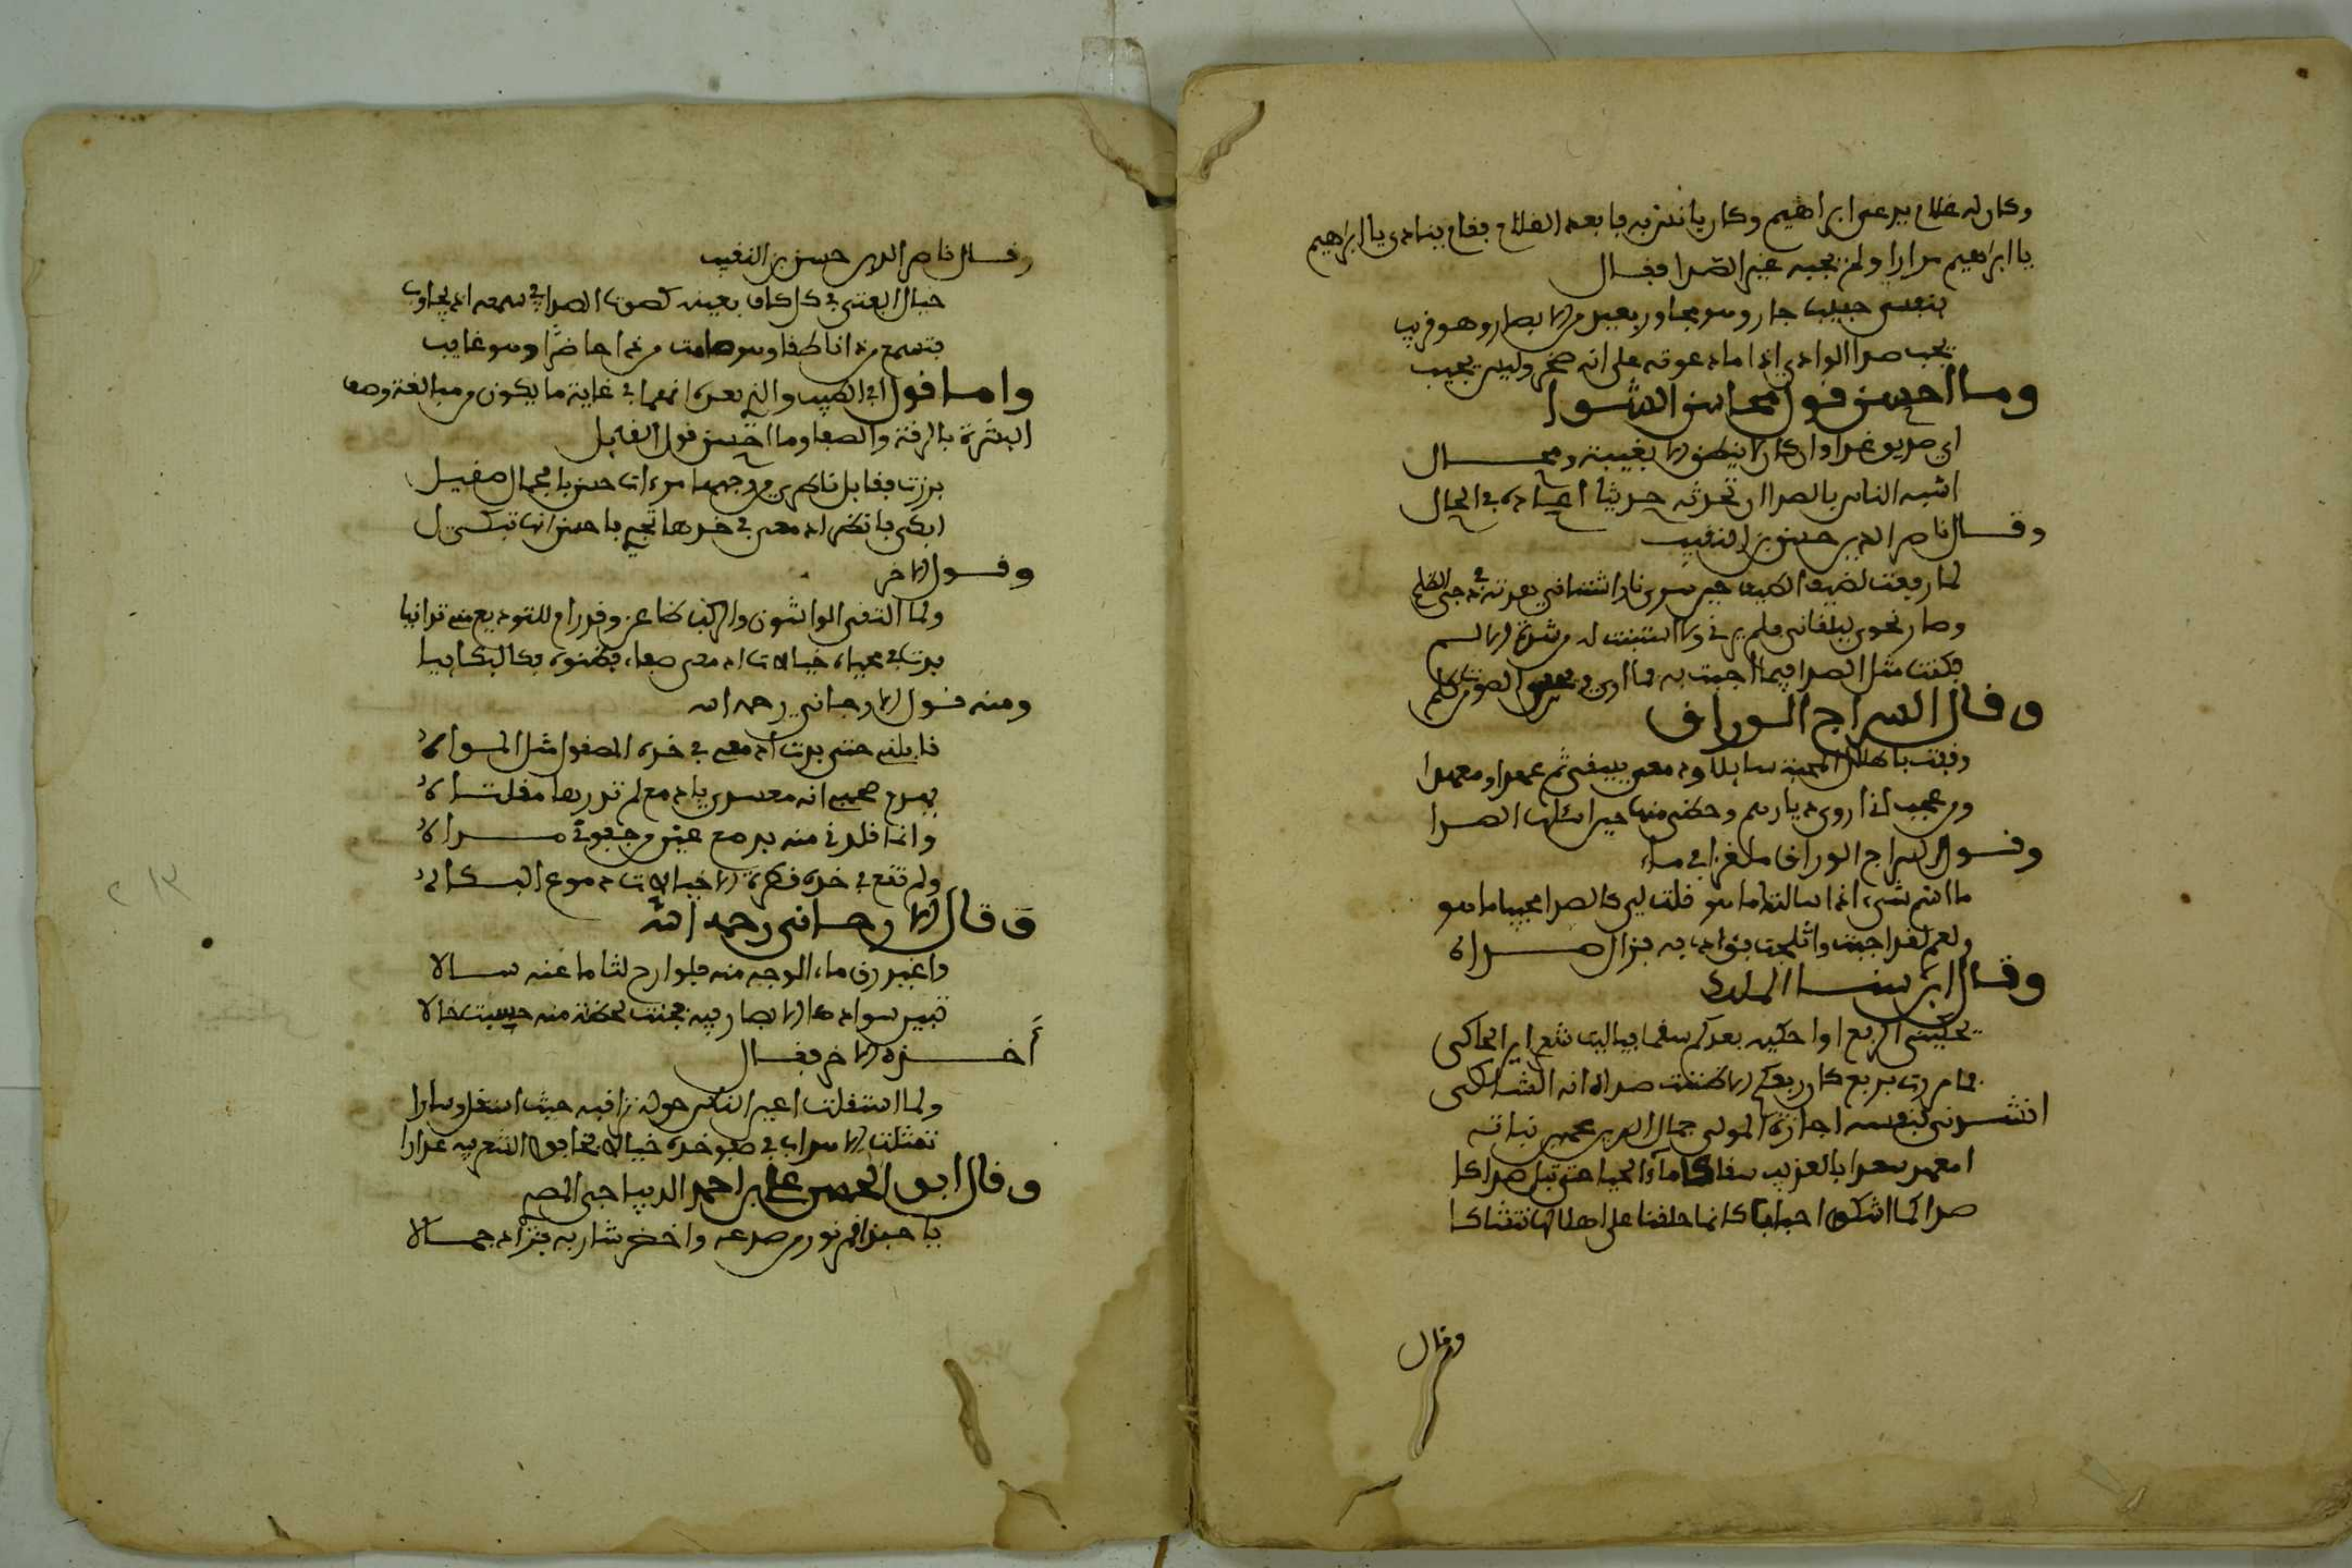 وكان له غلام يدعى ابراهيم وكان يانس به فابعد الغلام فقام ينادي يا ابراهيم
يا ابراهيم مرارا ولم يجبه غير الصدا فقال
بنفسي حبيب جار وهو مجاور بعيد من الابصار وهو قريب
يجيب صدا الوادي اذا ما دعوته على انه صخر وليس يجيب
وما احسن قول محاسن الشوا
لي صديق غدا وان كان لا ينطق الا بغيبة ومحال
اشبه الناس بالصدا ان تحدثه حديثا اعاده في الحال
وقال ناصر الدين حسن بن النقيب
لما رفعت لضيف الطيف حين سرى نار اشتياقي بعد في دجى الظلم
وصار نحوي يلقاني فلم يرني ولا استبنت له من شدة الالم
فكنت مثل الصدا فيما اجبت به لما اوى الصوت كلم
وقال السراج الوراق
وقفت باطلال الاحبة سائلا ودمعي يسقي ثم عهدا ومعهدا
ومن عجب اني اروي ديارهم وحظي منها حين اسئلها الصدا
وقول السراج الوراق ملغزا في ماء
ما اسم شيء اذا سالتك ما هو قلت لي كالصدا مجيبا ما هو
ولعمري لقد اجبت واثلجت فؤادي به فزال صداه
وقال ابن سنا الملك
يحكيني الربع اوا حكيه بعدكم سقما فياليت شعري اينا الحاكي
فما مررت بربع كان ربعكم الا ظننت صداه انه الشاكي
انشدني لنفسه اجازة المولى جمال الدين محمد بن نباته
امعهد سعدا بالعذيب سقاكا ما الحيا حتى تبل صداكا
صدا كلما اشكو احبابنا كانما حلفنا على اهلا لها نتشاكا
وقال
وقال ناصر الدين حسن بن النقيب
خيال الفتى في كل كاف بعينه كصوت الصدا في سمعه اذ يجاوب
فتسمع من ذا ناطقا وهو صامت من ذا حاضرا وهو غايب
واما قول في الطيب والذي بعده انهما في غاية ما يكون من مبالغة وصف
البشرة بالرقة والصفا وما احسن قول القايل
برزت فقابل ناظري من وجهها مرءات حسن بالجمال صقيل
ابكي فانظر ادمعي في خدها تجري فاحسب انها تبكي لي
وقول الاخر
ولما التقى الواشون والركب ظاعن وقد رام للتوديع منه تدانيا
بدت في محياه خيالات ادمعي صفاء فظنوه بكا لبكائيا
ومنه قول الارجاني رحمه الله
قابلني حتى بدت ادمعي في خده المصقول مثل المراه
يوهم صحبي انه مسعدي بادمع لم تذرها مقلتاه
وانما قلدني منه بدمع عين من جفوني مراه
ولم تقع في خده قطرة الا خيالات دموع البكاه
وقال الارجاني رحمه الله
واغيد رق ماء الوجه منه فلو ارخى لثاما عنه سالا
تبين سواد الابصار فيه فحيث لحظت منه حسبت خالا
أخذه الاخر فقال
ولما استقلت اعين الناس حوله تراقبه حيث استقل وسارا
تمثلت الاهداب في صفو خده خيالا فخالوا الشعر فيه عذارا
وقال ابو الحسن علي بن احمد الديباجي المصري
يا حبذا نور من صدغه واخضر شاربه فزاد جمالا